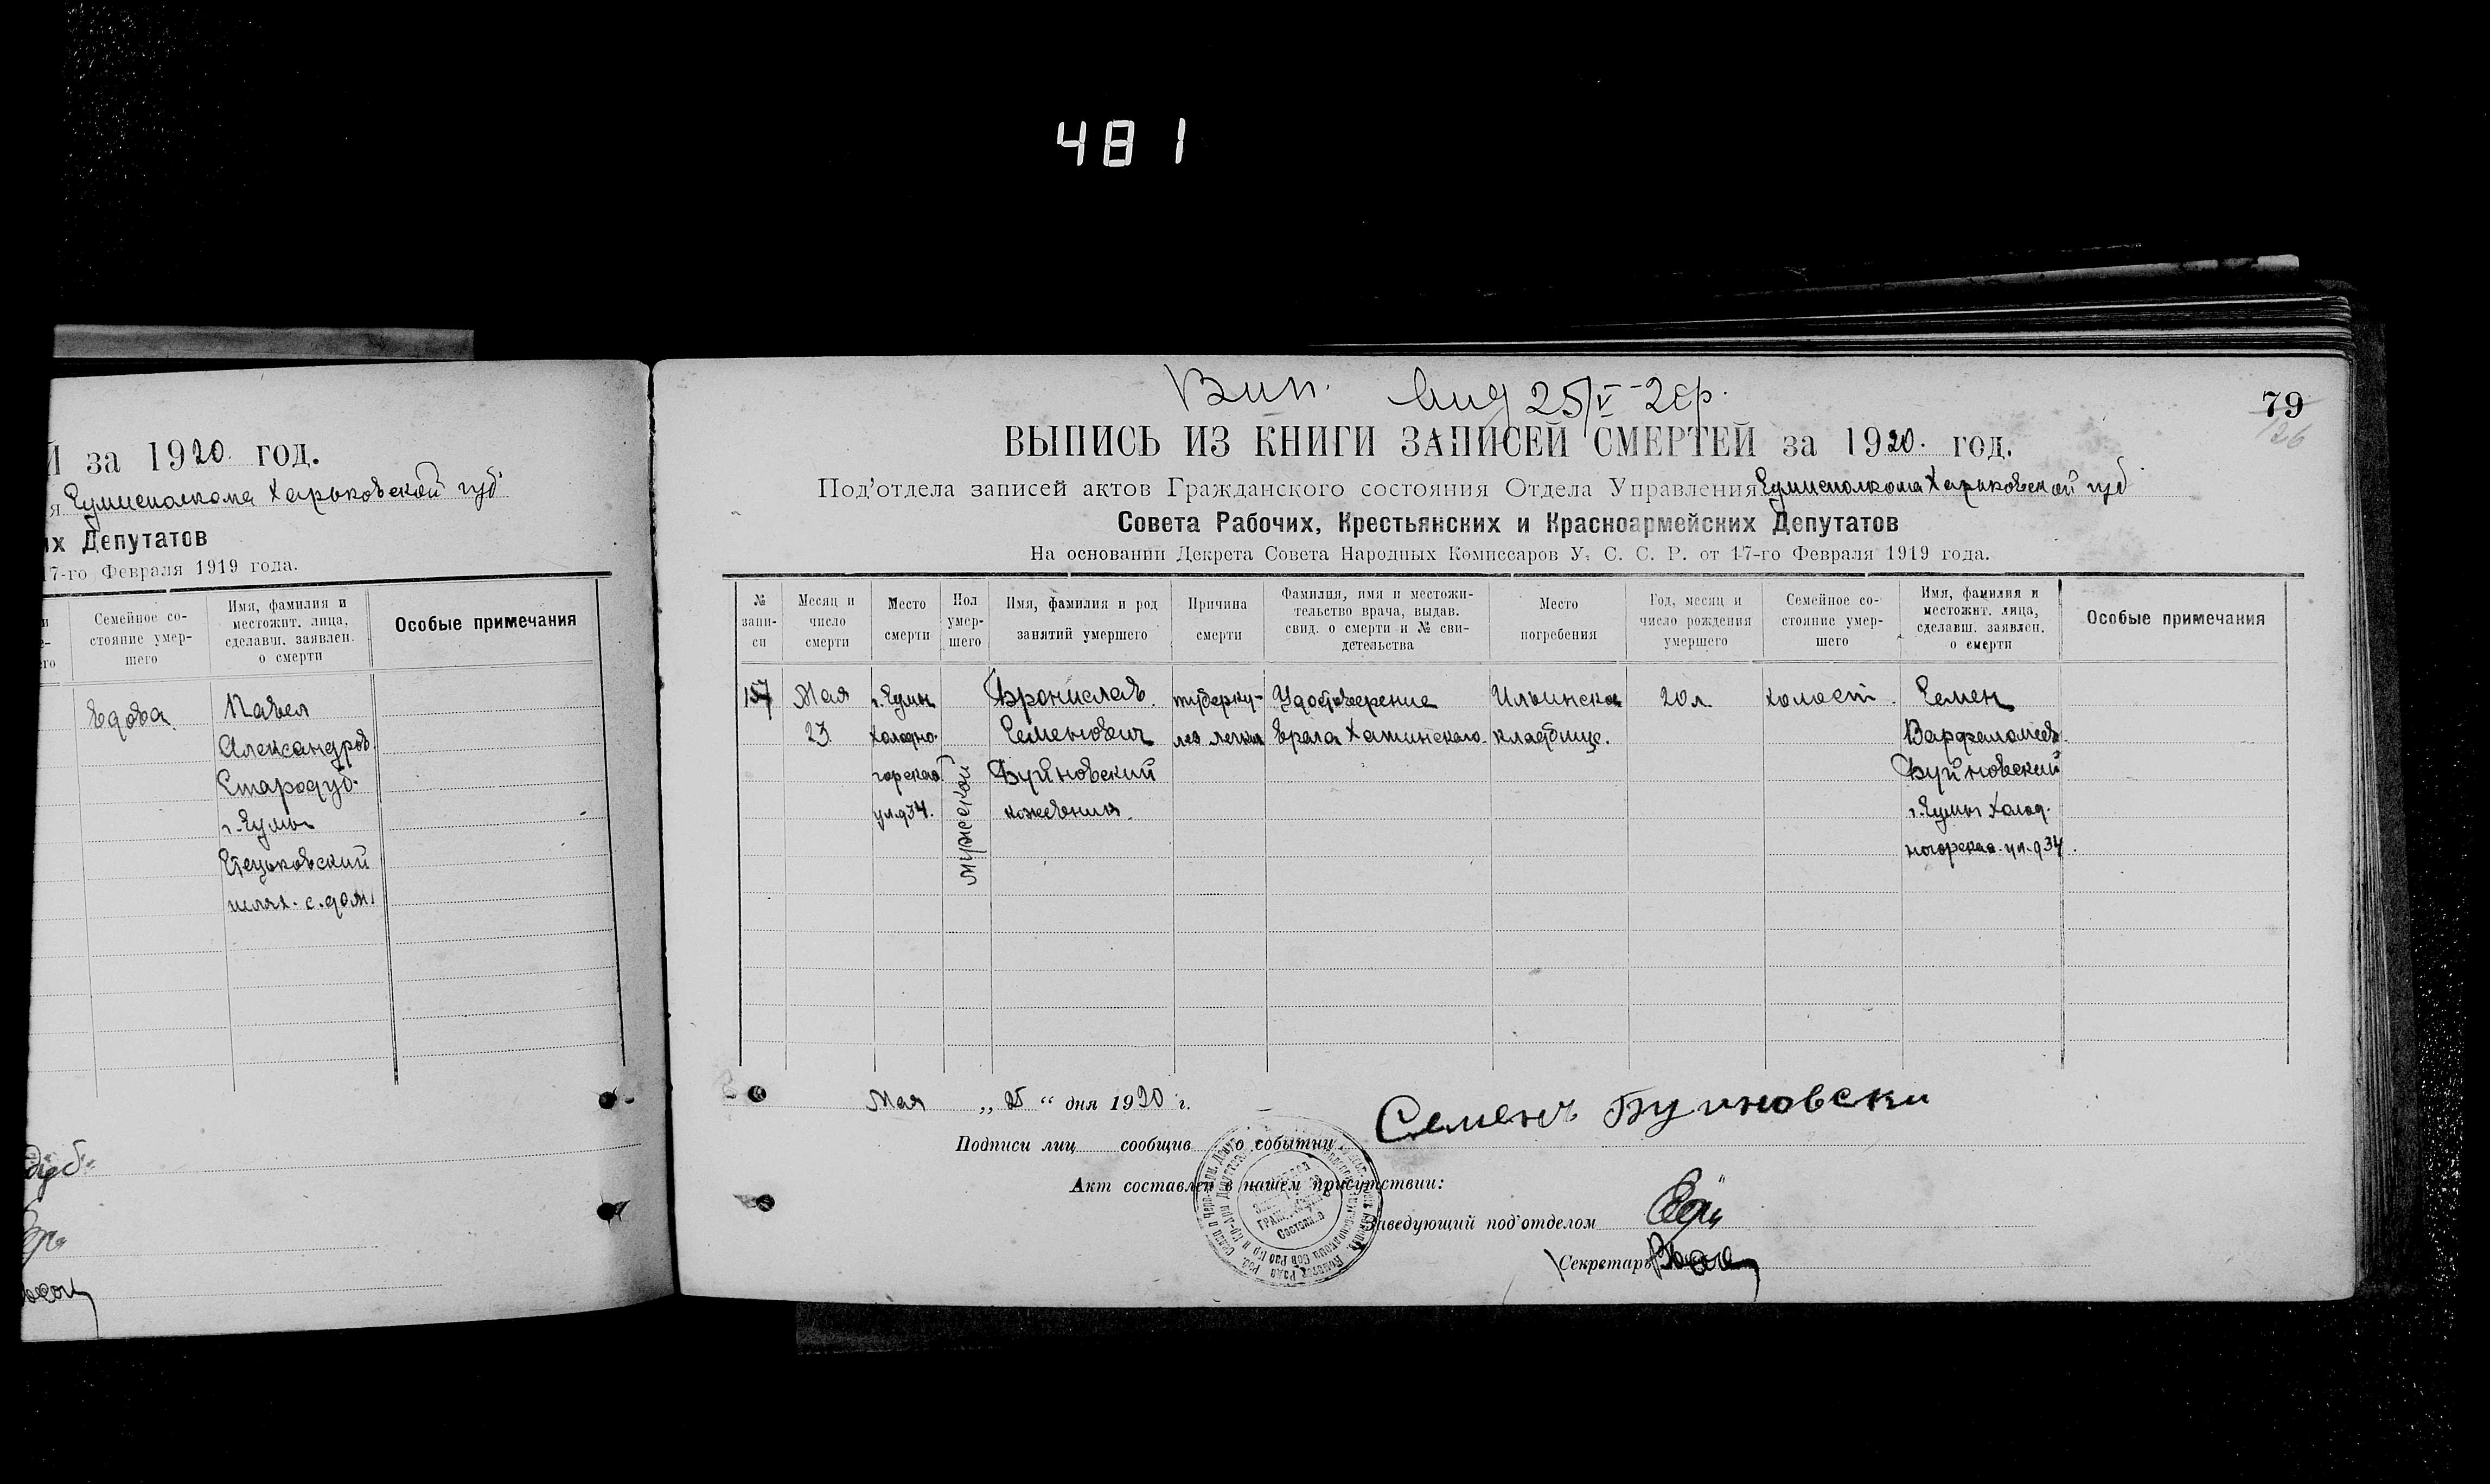 481
Й за 1920 год.
я Сумисполкома Харьковской губ
их Депутатов
17-го Февраля 1919 года.
Семейное со-
стояние умер-
шего
Имя, фамилия и
местожит. лица,
сделавш. заявлен.
о смерти
Особые примечания
Вдова
Павел
Александров.
Стародуб.
г. Сумы
шлях. с. дом
79
Вип. Вид 25/V-2 ер.
126
ВЫПИСЬ ИЗ КНИГИ ЗАПИСЕЙ СМЕРТЕЙ за 1920. год.
Под'отдела записей актов Гражданского состояния Отдела Управления Сумисполкома Харьковской губ
Совета Рабочих, Крестьянских и Красноармейских Депутатов
На основании Декрета Совета Народных Комиссаров У. С. С. Р. от 17-го Февраля 1919 года.
№
запи-
си
Месяц и
число
смерти
Место
смерти
Пол
умер-
шего
Имя, фамилия и род
занятий умершего
Причина
смерти
Фамилия, имя и местожи-
тельство врача, выдав.
свид. о смерти и № сви-
детельства
Место
погребения
Год, месяц и
число рождения
умершего
Семейное со-
стояние умер-
шего
Имя, фамилия и
местожит. лица,
сделавш. заявлен.
о смерти
Особые примечания
157
Мая
23.
г. Сумы
Холодно-
горская
ул. д 34.
мужеской
Бронислав
Семенович
Буйновский
кожевник.
туберку-
лез легких
Удостоверение
врача Хатинского.
Ильинское
кладбище.
20 л
холост.
Семен
Варфоломеев.
Буйновский
г. Сумы Холод-
ногорская ул. д 34.
Мая „ 25 “ дня 1920 г.
Подписи лиц сообщив о событии
Семенъ Буиновски
Акт составлен в нашем присутствии:
Заведующий под'отделом
Секретарь